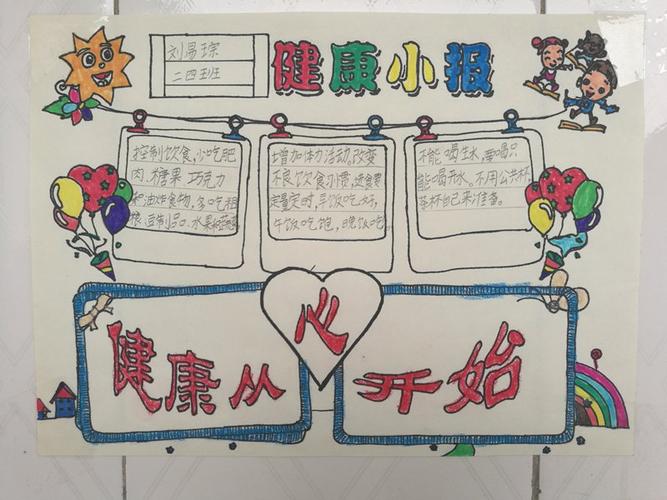 刘易琮
二四班
健康小报
控制饮食,小吃肥
肉、糖果 巧克力
和油炸食物,多吃粗
粮、豆制品、水果和蔬菜
增加体力活动。改变
不良饮食习惯,进食要
定量定时,早饭吃好,
午饭吃饱,晚饭吃
不能喝生水,要喝只
能喝开水。不用公共杯,
茶杯自己来准备。
健康从心开始